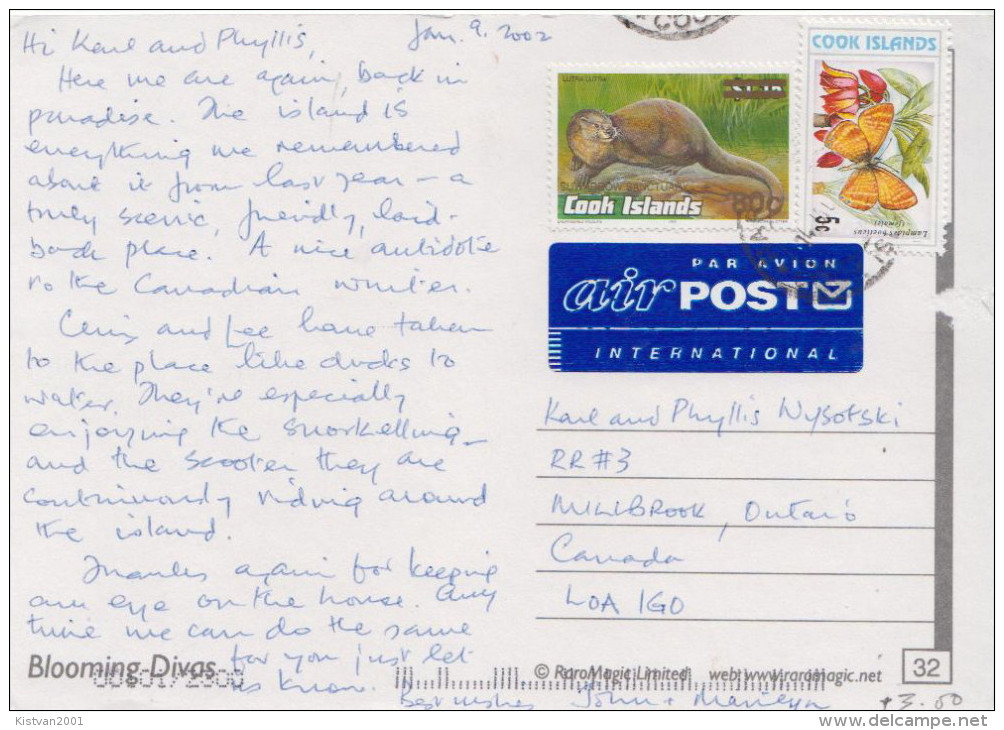 Hi Karl and Phyllis,
Jan. 9. 2002
Here we are again, back in
paradise. The island is
everything we remembered
about it from last year – a
truly scenic, friendly, laid-
back place. A nice antidote
to the Canadian winter.
Chris and Lee have taken
to the place like ducks to
water. They're especially
enjoying the snorkelling –
and the scooter they are
continuously riding around
the island.
Thanks again for keeping
an eye on the house. Any
time we can do the same
for you just let
us know.
Best wishes John + Marilyn
LUTRA LUTRA
80c
Cook Islands
COOK ISLANDS
5c
Lampides boeticus
(female)
PAR AVION
air POST
INTERNATIONAL
Karl and Phyllis Wysotski
RR #3
MILLBROOK, Ontario
Canada
L0A 1G0
Blooming Divas
© RaroMagic Limited web: www.raromagic.net
32
+3.00
Kistvan2001